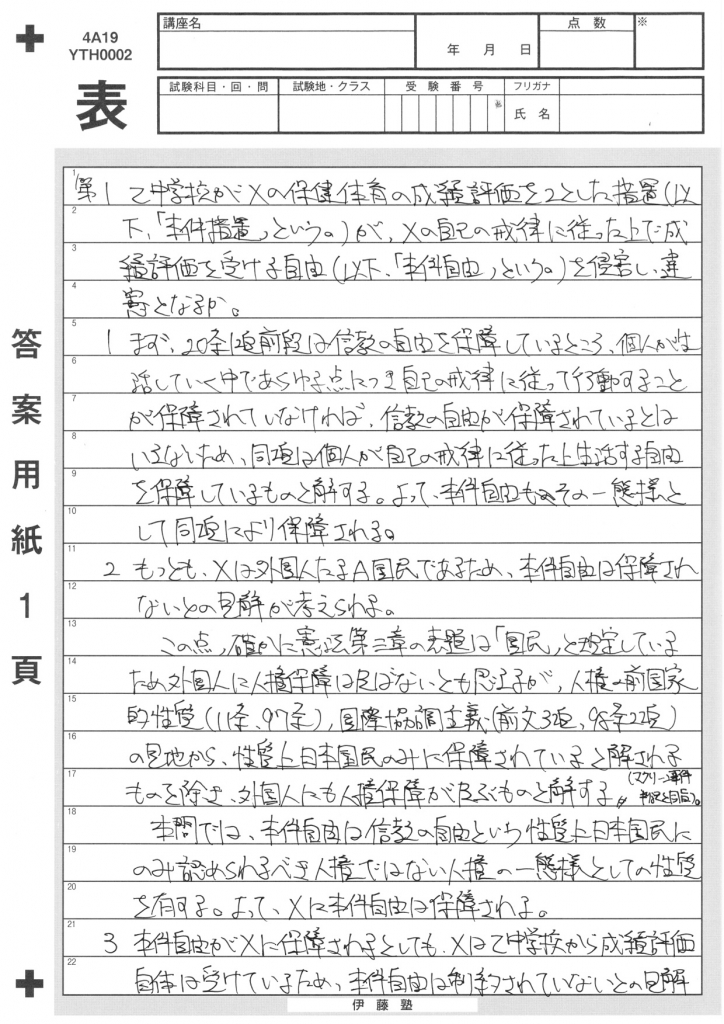 4A19
YTH0002
表
講座名
年 月 日
点数
※
試験科目・回・問
試験地・クラス
受験番号
フリガナ
氏名
答案用紙1頁
1 第1 乙中学校がXの保健体育の成績評価を2とした措置(以
2 下、「本件措置」という。)が、Xの自己の戒律に従った上で成
3 績評価を受ける自由(以下、「本件自由」という。)を侵害し、違
4 憲となるか。
5 1 まず、20条1項前段は信教の自由を保障しているところ、個人が生
6 活していく中であらゆる点につき自己の戒律に従って行動すること
7 が保障されていなければ、信教の自由が保障されているとは
8 いえないため、同項は個人が自己の戒律に従った上生活する自由
9 を保障しているものと解する。よって、本件自由もその一態様と
10 して同項により保障される。
11 2 もっとも、Xは外国人たるA国民であるため、本件自由は保障され
12 ないとの見解が考えられる。
13 この点、確かに憲法第三章の表題は「国民」と規定している
14 ため外国人に人権保障は及ばないとも思えるが、人権の前国家
15 的性質(11条、97条)、国際協調主義(前文3項、98条2項)
16 の見地から、性質上日本国民のみに保障されていると解される
17 ものを除き、外国人にも人権保障が及ぶものと解する(マクリーン事件判決に同旨)。
18 本問では、本件自由は信教の自由という性質上日本国民に
19 のみ認められるべき人権ではない人権の一態様としての性質
20 を有する。よって、Xに本件自由は保障される。
21 3 本件自由がXに保障されるとしても、Xは乙中学校から成績評価
22 自体は受けているため、本件自由は制約されていないとの見解
伊藤塾